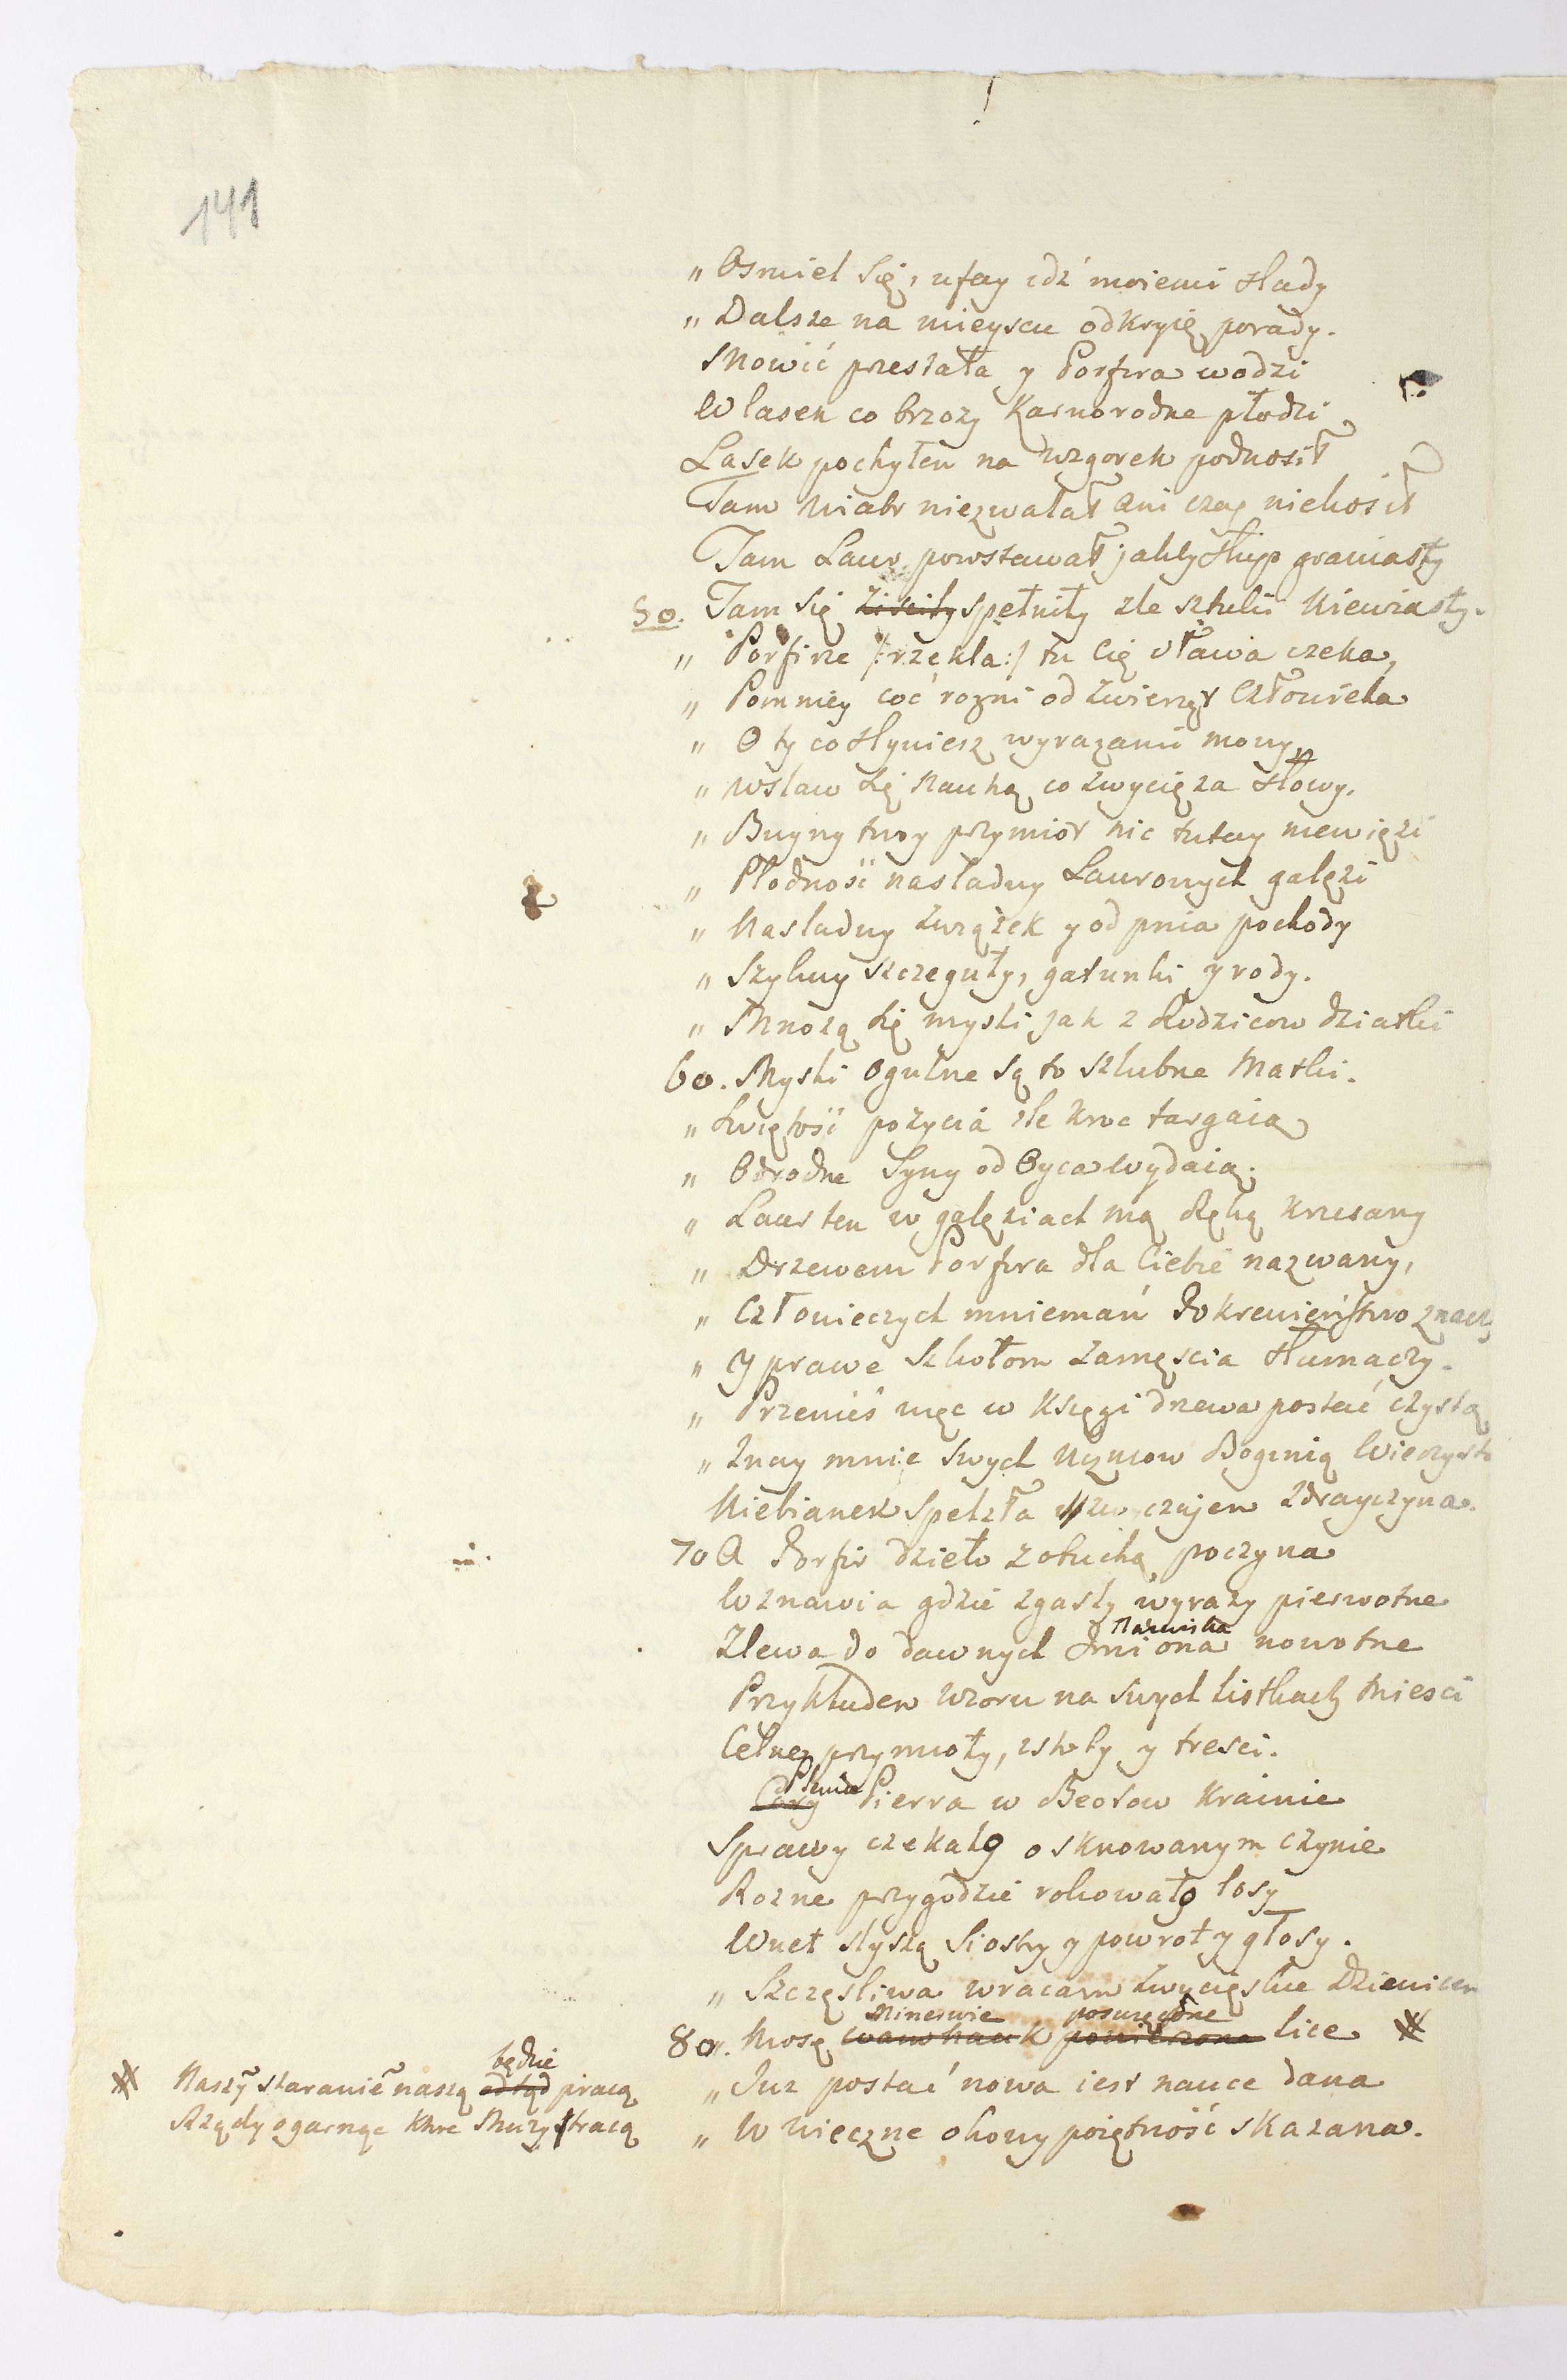 141
„ Osmiel się, ufay idź moiemi slady
„ Dalsze na mieyscu odkryię porady.
Mowić przestała y Porfira wodzi
W lasek co brzozy Karnorodne płodzi
Lasek pochyłen na wzgorek podnosił
Tam Wiatr niezwalał ani czas niekosił
Tam Laur powstawał jakby słup graniasty
50. Tam się ziściły spełniły złe sztuki Niewiasty.
„ Porfirze /:rzekła:/ tu Cię sława czeka,
„ Pomniey coć rożni od zwierząt Człowieka
„ O ty co słyniesz wyrazami mowy
„ Wsław się Nauką co zwycięza słowy.
„ Buyny twoy przymiot nic tutay niewięzi
„ Płodność nasladuy Laurowych gałęzi
„ Nasladuy związek y od pnia pochody
„ Szykuy szczeguły, gatunki y rody.
„ Mnożą się mysli jak z Rodzicow dziatki
60. Mysli ogulne są to szlubne Matki.
„ Swiętość pożycia ile kroc targaią
„ Odrodne Syny od Oyca wydaią.
„ Laur ten w gałęziach mą ręką krzesany
„ Drzewem Porfira dla Ciebie nazwany,
„ Człowieczych mniemań Pokrewieństwo znaczy
„ Y prawe Szkołom zamęscia tłumaczy.
„ Przenieś więc w Księgi drzewa postać czystą
„ Znay mnie swych Uczniow Boginią Wieczystą
Niebianek spełzła zdrayczyna.
70 A Porfir dzieło z otuchą poczyna
Wznawia gdzie zgasły wyrazy pierwotne
Zlewa do dawnych Imiona Nazwiska nowotne
Przykładem wzoru na swych listkach miesci
Celne przymioty, y tresci.
Cory Plemie Pierra w Beotow Krainie
Sprawy czekało o sknowanym czynie
Rozne przygodzie rokowało losy
Wnet słyszą Siostry y powrot y głosy.
„ Szczęsliwa wracam zwycięskie Dziewicem
80„. Niosę Minerwie poswięcone lice #
„ Juz postać nowa iest nauce dana
„ W wieczne okowy poiętność skazana.
# Naszym staraniem naszą odtąd będzie pracą
Rządy ogarnąc Ktore Muzy tracą